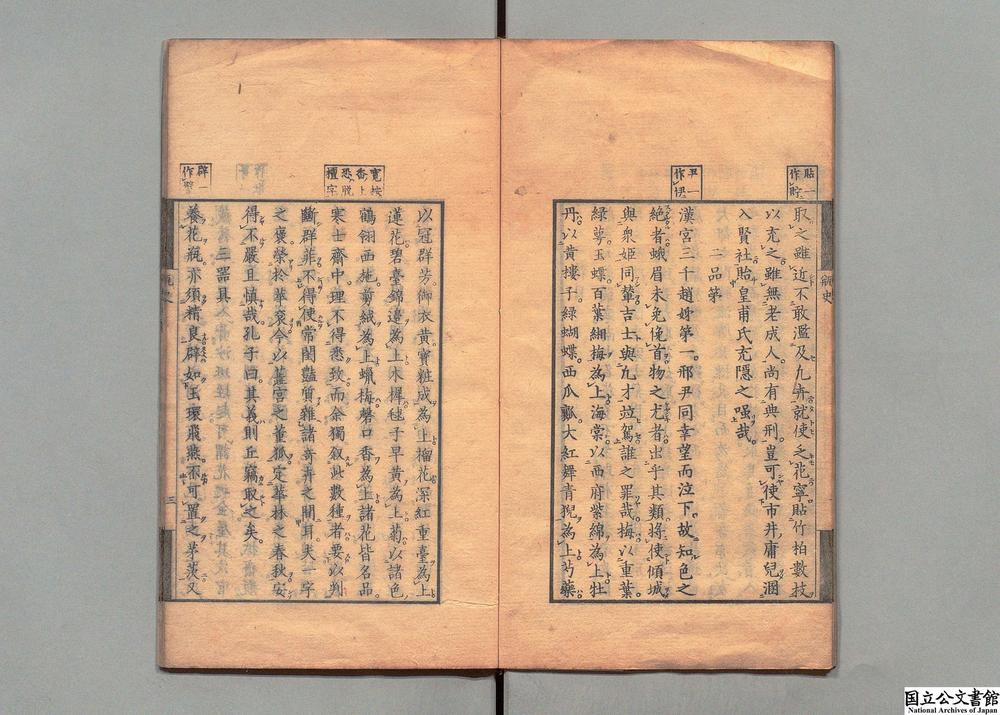 貼一作貯
取之雖近不敢濫及凡卉就使乏花寧貼竹柏數枝
以充之雖無老成人尚有典刑豈可使市井庸兒溷
入賢社貽皇甫氏充隱之嗤哉
二品第
尹一作伊
漢宮三千趙姊第一邢尹同幸望而泣下故知色之
絕者蛾眉未免俛首物之尤者出乎其類將使傾城
與衆姬同輦吉士與凡才竝駕誰之罪哉梅以重葉
綠萼玉蝶百葉緗梅為上海棠以西府紫綿為上牡
丹以黃樓子綠蝴蝶西瓜瓤大紅舞青猊為上芍藥
瓶史
以冠群芳御衣黃寶粧成為上榴花深紅重臺為上
蓮花碧臺錦邊為上木樨毬子早黃為上菊以諸色
鶴翎西施剪絨為上蠟梅磬口香為上諸花皆名品
寒士齋中理不得悉致而余獨叙此數種者要以判
斷群菲不得使常閨艷質雜諸奇卉之間耳夫一字
之褒榮於華袞今以蘂宮之董狐定華林之春秋安
得不嚴且慎哉孔子曰其義則丘竊取之矣
辟一作
養花瓶亦須精良辟如玉環飛燕不可置之茅茨又
三
国立公文書館
National Archives of Japan